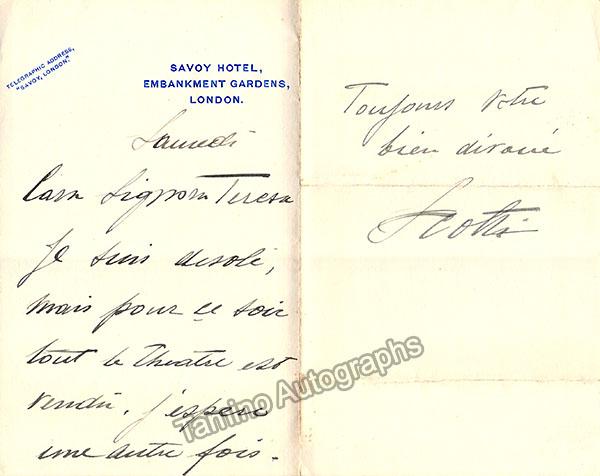 TELEGRAPHIC ADDRESS,
"SAVOY, LONDON."
SAVOY HOTEL,
EMBANKMENT GARDENS,
LONDON.
Samedi
Cara Signora Teresa
Je suis desolé,
mais pour ce soir
tout le theatre est
vendu. J'espere
une autre fois.
Toujours votre
bien divoué
Scotti
Tamino Autographs